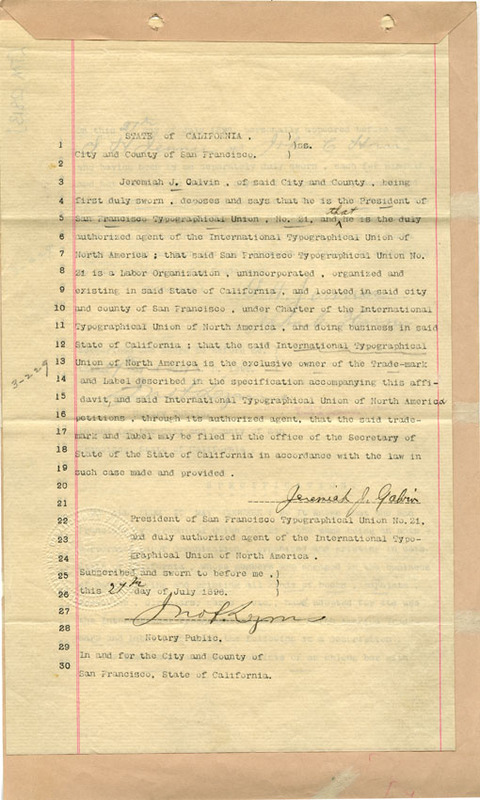 STATE of CALIFORNIA . )
1 )ss.
City and County of San Francisco. )
2
3 Jeremiah J. Calvin , of said City and County , being
4 first duly sworn , deposes and says that he is the President of
that
5 San Francisco Typographical Union , No. 21, and he is the duly
6 authorized agent of the International Typographical Union of
7 North America ; that said San Francisco Typographical Union No.
8 21 is a Labor Organization , unincorporated , organized and
9 existing in said State of California , and located in said city
10 and county of San Francisco , under Charter of the International
11 Typographical Union of North America , and doing business in said
12 State of California ; that the said International Typographical
13 Union of North America is the exclusive owner of the Trade-mark
3-229
14 and Label described in the specification accompanying this affi-
15 davit, and said International Typographical Union of North America
16 petitions , through its authorized agent, that the said trade-
17 mark and label may be filed in the office of the Secretary of
18 State of the State of California in accordance with the law in
19 such case made and provided .
20
21 Jeremiah J. Galvin
22 President of San Francisco Typographical Union No. 21,
23 and duly authorized agent of the International Typo-
24 graphical Union of North America .
25 Subscribed and sworn to before me , )
26 this 27th day of July 1898. )
27
28 Notary Public.
29 In and for the City and County of
30 San Francisco, State of California.